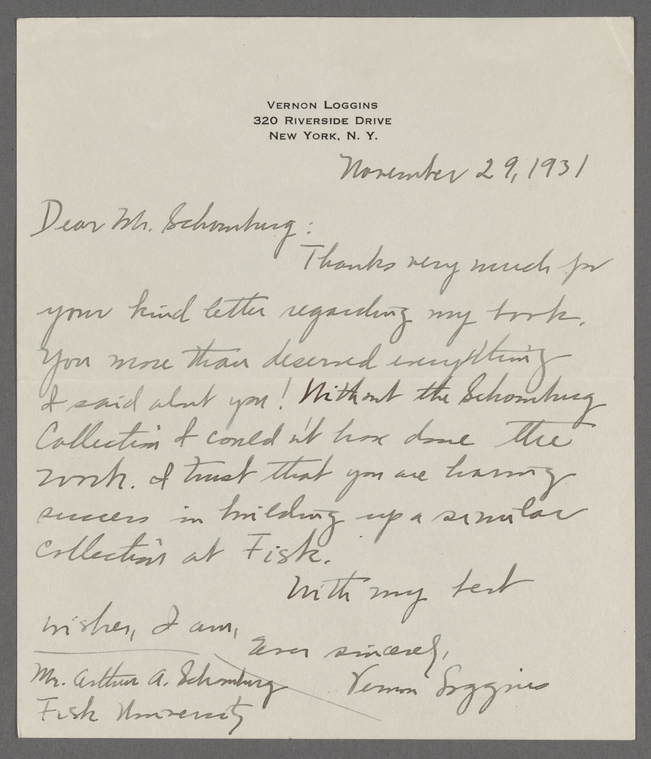 VERNON LOGGINS
320 RIVERSIDE DRIVE
NEW YORK, N. Y.
November 29, 1931
Dear Mr. Schomburg:
Thanks very much for
your kind letter regarding my book.
You more than deserved everything
I said about you! Without the Schomburg
Collection I could n't have done the
work. I trust that you are having
success in building up a similar
collection at Fisk.
With my best
wishes, I am,
Ever sincerely,
Mr. Arthur A. Schomburg
Vernon Loggins
Fisk University